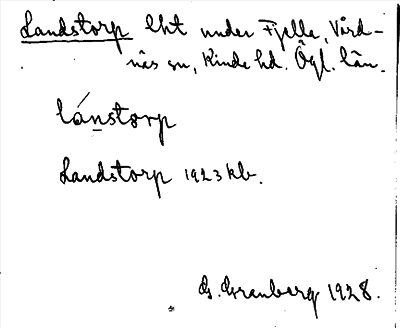 Landstorp lht under Fjelle, Vård-
näs sn, Kinda hd. Ögl. län.
lánstorp
Landstorp 1923 kb.
G. Granberg 1928.